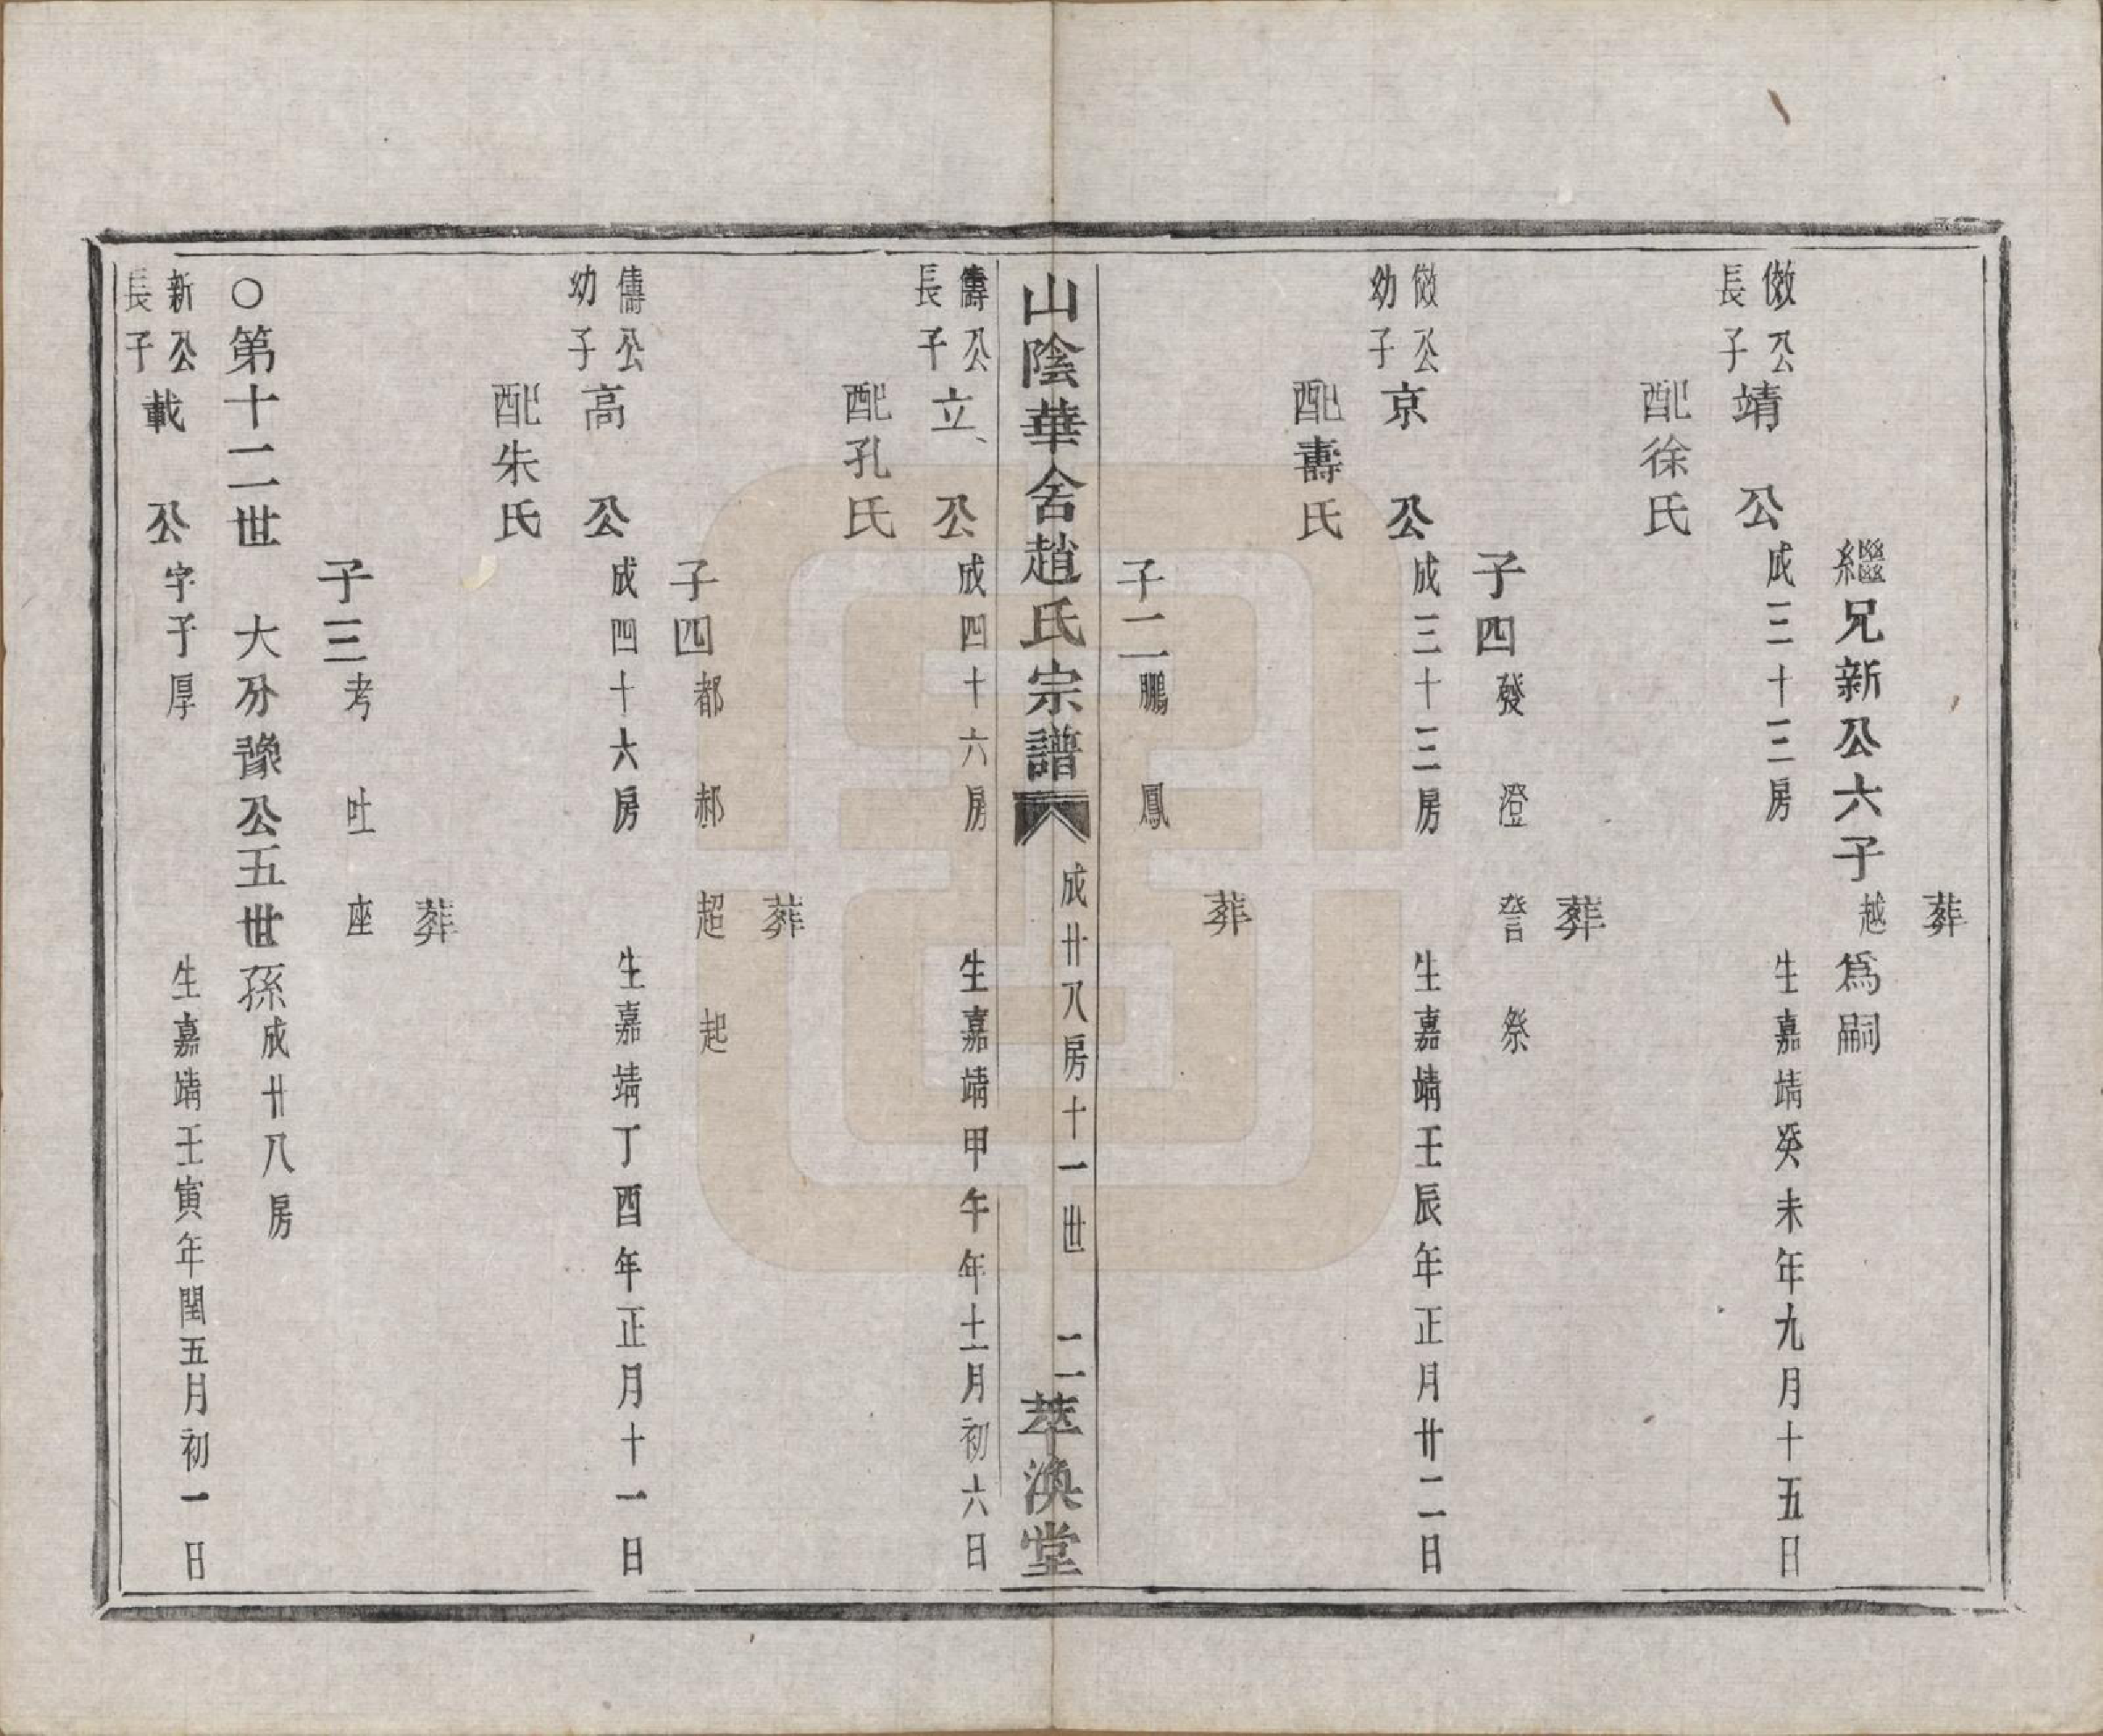 葬
繼兄新公六子越爲嗣
傚公長子靖　公　成三十三房　生嘉靖癸未年九月十五日
配徐氏
葬
子四　發　澄　詧　祭
傚公幼子京　公　成三十三房　生嘉靖壬辰年正月廿二日
配壽氏
葬
子二　鵬　鳳
山陰華舍趙氏宗譜　成廿八房十一世　二　萃渙堂
儔公長子立　公　成四十六房　生嘉靖甲午年十一月初六日
配孔氏
葬
子四　都　郝　超　起
儔公幼子高　公　成四十六房　生嘉靖丁酉年正月十一日
配朱氏
葬
子三　考　吐　座
○第十二世　大分豫公五世孫　成廿八房
新公長子載　公　字子厚　生嘉靖壬寅年閏五月初一日